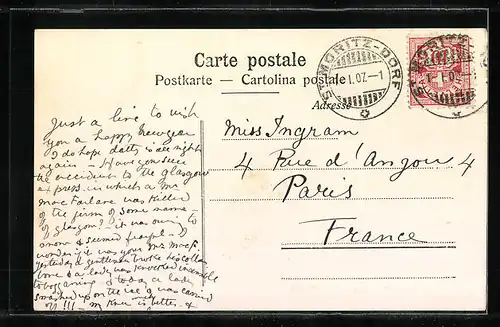 Carte postale
Postkarte — Cartolina postale
Adresse
ST. MORITZ-DORF
1.I.07.—1
ST. MORITZ
1.I.0
10
Miss Ingram
4 Rue d'Anjou 4
Paris
France
Just a line to wish
you a happy New year
I do hope datty is all right
again — Have you seen
the accident to the Glasgow
express in which a Mr
MacFarlane was killed
of the firm of some name —
of Glasgow? it was owing to
snow & seemed fearful — I
wonder if it was your Mr MacF.
yesterday a gentleman broke his collar
bone & a lady was knocked insensible
tobogganing & today a lady
smashed up on the ice & was carried
off!!! — my knee is better &